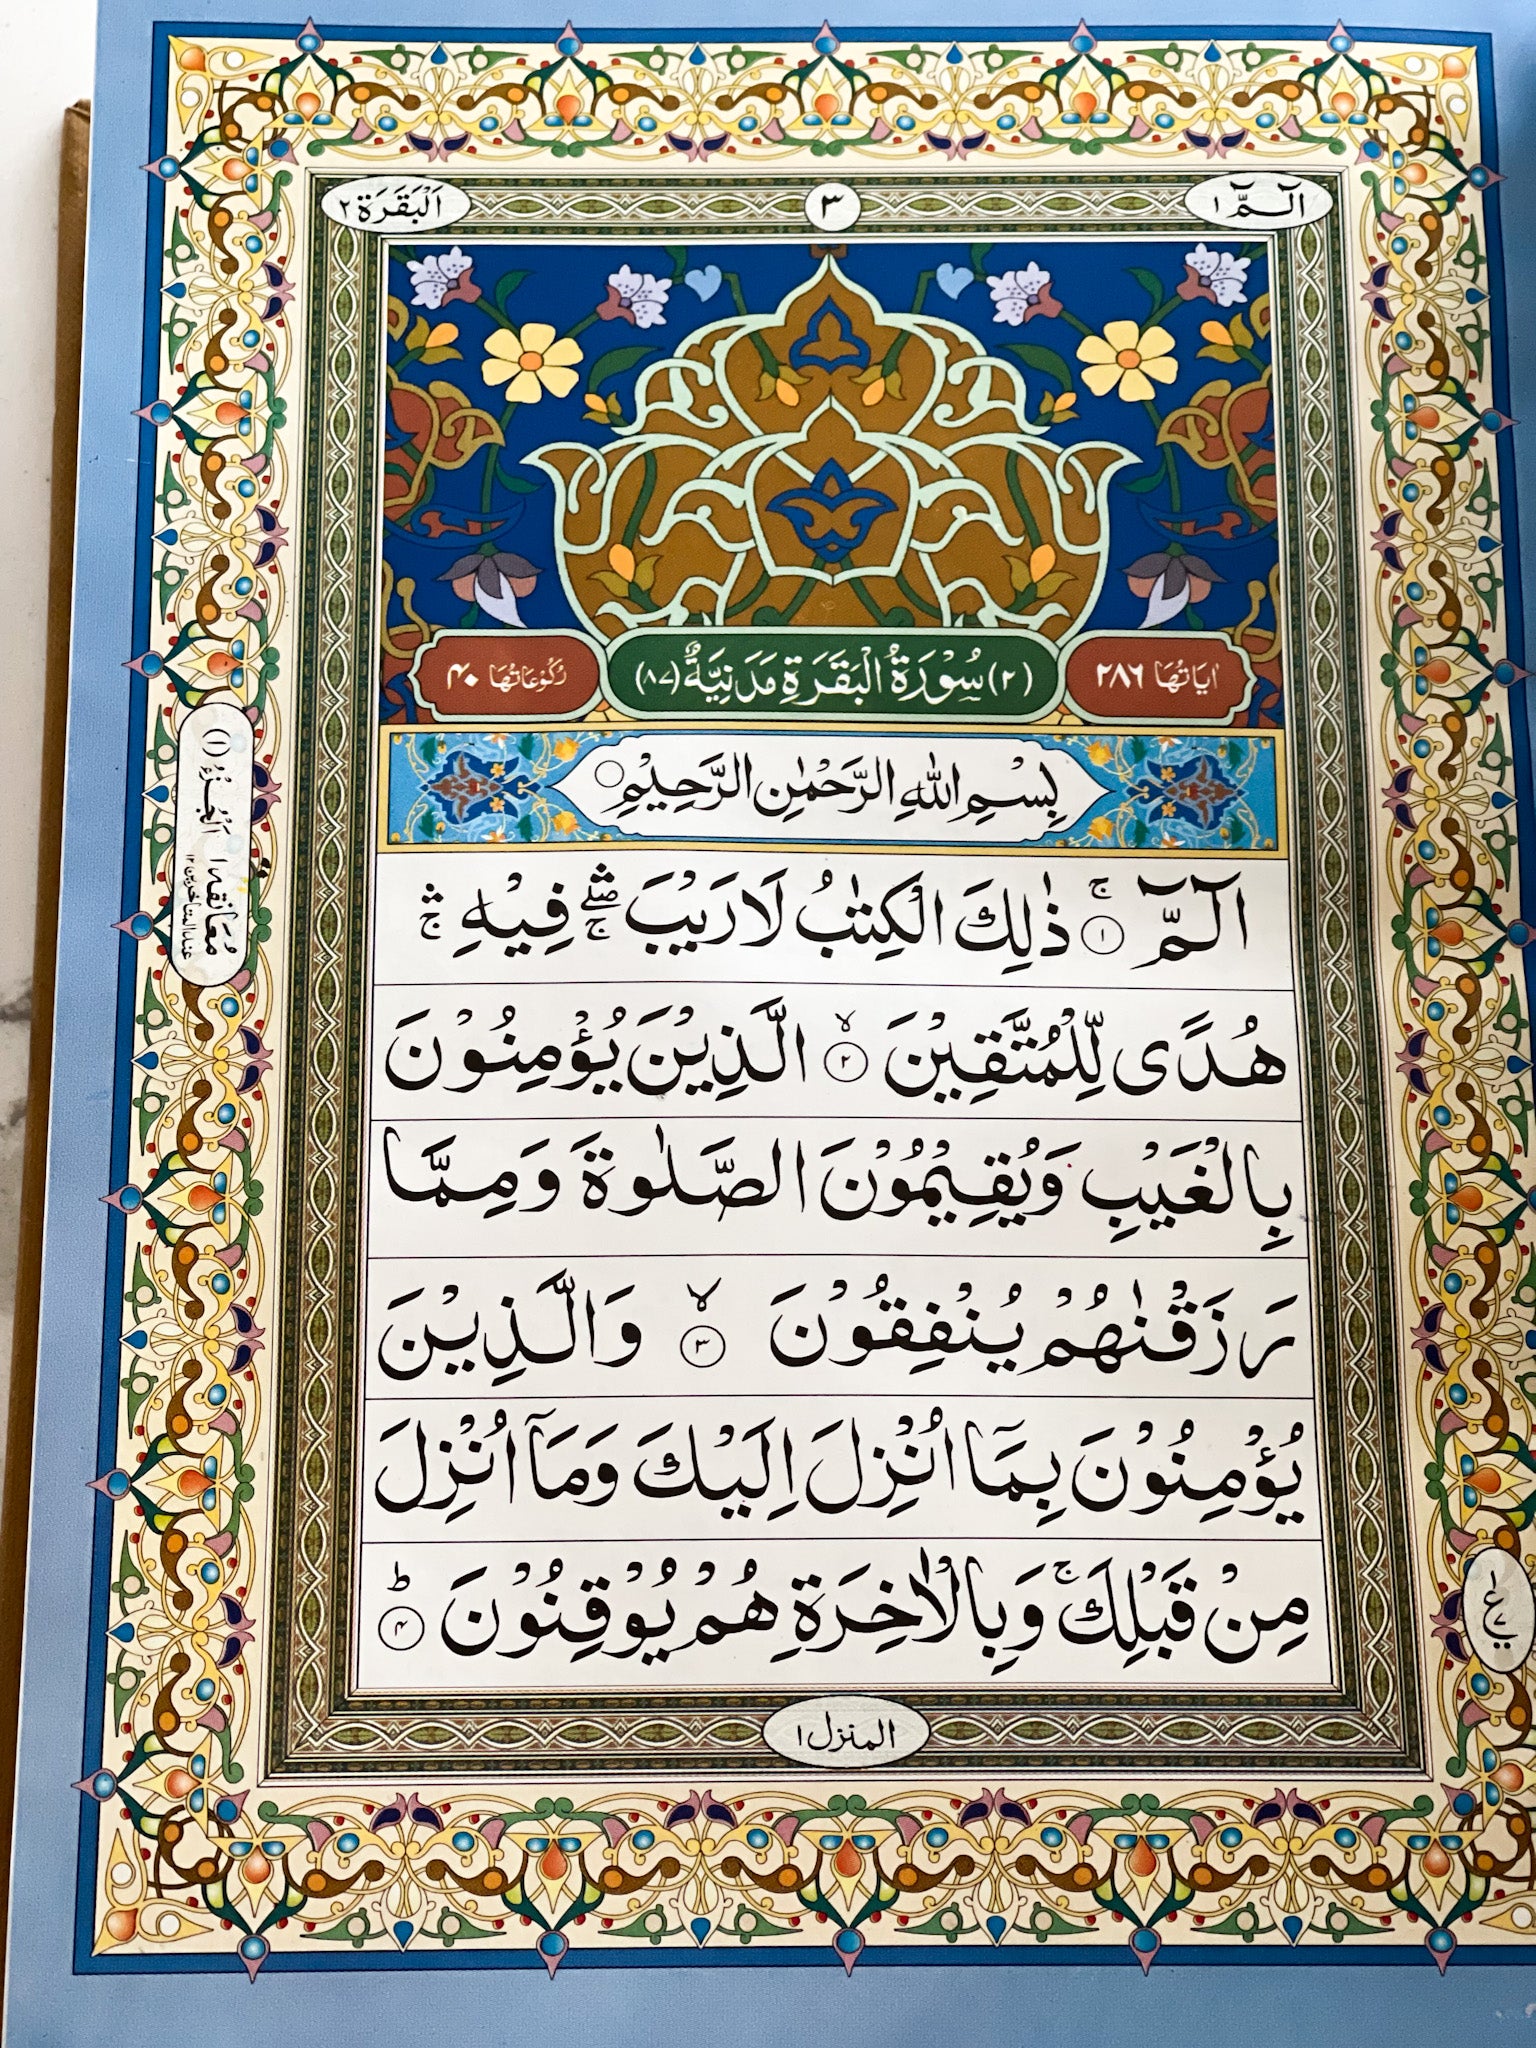 الٓـمّٓ ١
٣
اَلْبَقَرَة ٢
اٰيَاتُهَا ٢٨٦
(٢) سُوْرَةُ الْبَقَرَةِ مَدَنِيَّةٌ (٨٧)
رُكُوْعَاتُهَا ۴۰
بِسْمِ اللّٰهِ الرَّحْمٰنِ الرَّحِيْمِ ○
الٓـمّٓ ۚ ١ ذٰلِكَ الْكِتٰبُ لَا رَيْبَ ۛۖۚ فِيْهِ ۛۚ
هُدًى لِّلْمُتَّقِيْنَ ۙ ٢ الَّذِيْنَ يُؤْمِنُوْنَ
بِالْغَيْبِ وَيُقِيْمُوْنَ الصَّلٰوةَ وَمِمَّا
رَزَقْنٰهُمْ يُنْفِقُوْنَ ۙ ٣ وَالَّذِيْنَ
يُؤْمِنُوْنَ بِمَآ اُنْزِلَ اِلَيْكَ وَمَآ اُنْزِلَ
مِنْ قَبْلِكَ ۚ وَبِالْاٰخِرَةِ هُمْ يُوْقِنُوْنَ ؕ ۴
المنزل ١
اَلْجُزْءُ (١)
مُعَانقه ١
عند المتاخرين ١٢